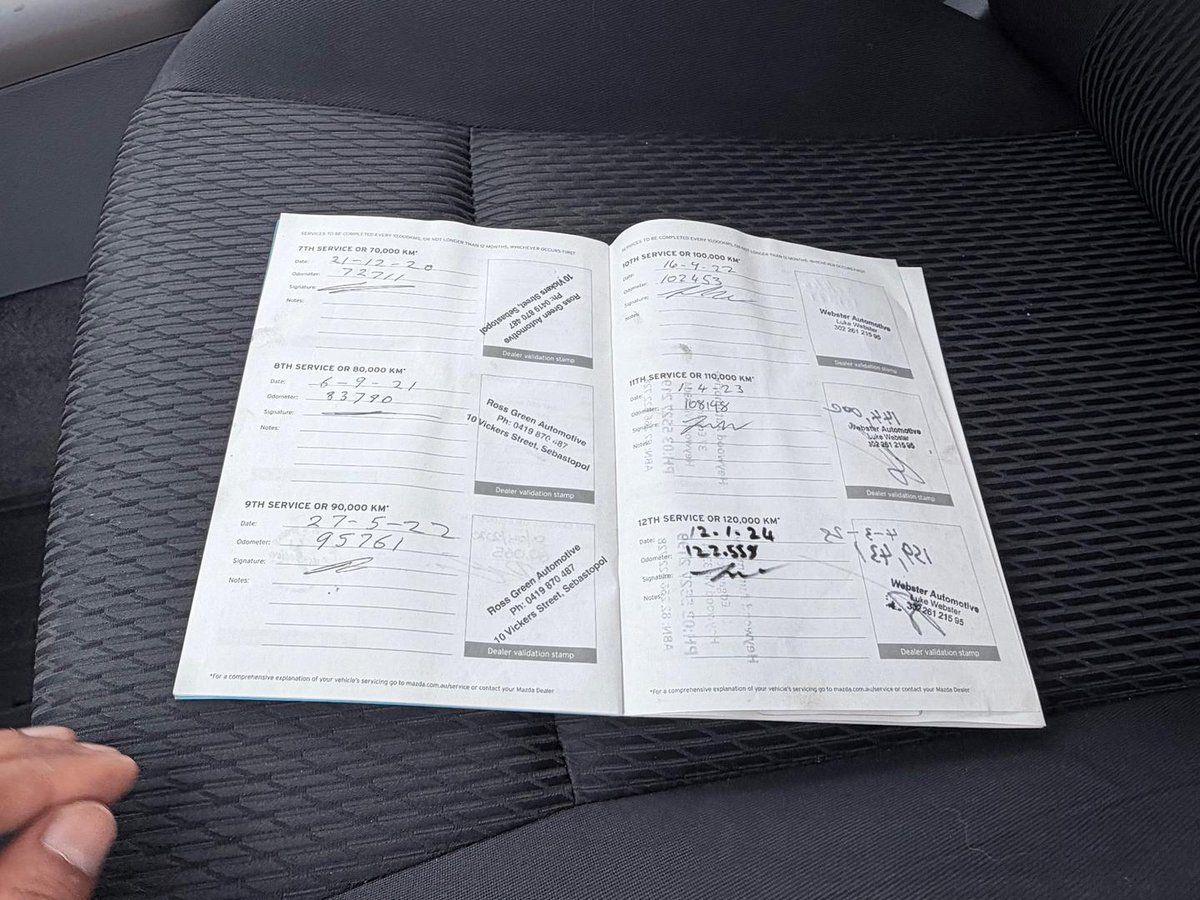 SERVICES TO BE COMPLETED EVERY 10,000KMS, OR NOT LONGER THAN 12 MONTHS, WHICHEVER OCCURS FIRST
7TH SERVICE OR 70,000 KM*
Date: 21-12-20
Odometer: 72711
Signature:
Notes:
Ross Green Automotive
Ph: 0419 870 487
10 Vickers Street, Sebastopol
Dealer validation stamp
8TH SERVICE OR 80,000 KM*
Date: 6-9-21
Odometer: 83790
Signature:
Notes:
Ross Green Automotive
Ph: 0419 870 487
10 Vickers Street, Sebastopol
Dealer validation stamp
9TH SERVICE OR 90,000 KM*
Date: 27-5-22
Odometer: 95761
Signature:
Notes:
Ross Green Automotive
Ph: 0419 870 487
10 Vickers Street, Sebastopol
Dealer validation stamp
*For a comprehensive explanation of your vehicle's servicing go to mazda.com.au/service or contact your Mazda Dealer
SERVICES TO BE COMPLETED EVERY 10,000KMS, OR NOT LONGER THAN 12 MONTHS, WHICHEVER OCCURS FIRST
10TH SERVICE OR 100,000 KM*
Date:
Odometer: 102453
Signature:
Notes:
Webster Automotive
Luke Webster
302 261 215 95
Dealer validation stamp
11TH SERVICE OR 110,000 KM*
Date: 1-4-23
Odometer: 108198
Signature:
Notes:
Webster Automotive
Luke Webster
302 261 215 95
Dealer validation stamp
12TH SERVICE OR 120,000 KM*
Date: 12.1.24
Odometer: 122.558
Signature:
Notes:
Webster Automotive
Luke Webster
302 261 215 95
Dealer validation stamp
*For a comprehensive explanation of your vehicle's servicing go to mazda.com.au/service or contact your Mazda Dealer